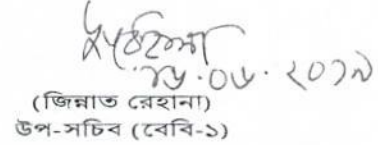 ১৬.০৬.২০১৯
(জিন্নাত রেহানা)
উপ-সচিব (বেবি-১)